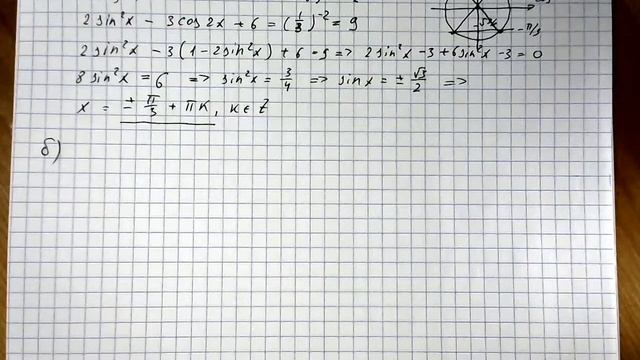 2 sin²x − 3cos 2x + 6 = (1/3)⁻² = 9
−√3/2
−π/3
2 sin²x − 3(1−2sin²x) + 6 = 9 => 2sin²x −3 + 6sin²x −3 = 0
8 sin²x = 6 => sin²x = 3/4 => sin x = ± √3/2 =>
x = ± π/3 + πk, k ∈ Z
б)